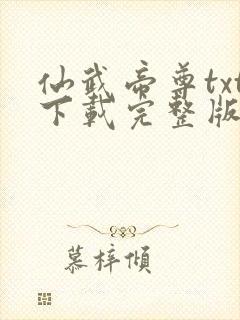 仙武帝尊txt
下载完整版
慕梓倾